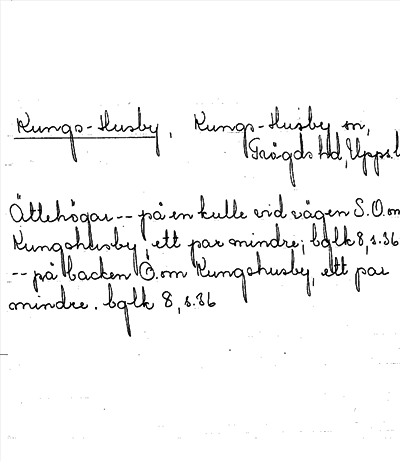 Kungs-Husby, Kungs-Husby sn,
Trögds hd, Upps.l
Ättehögar -- på en kulle vid vägen S.O.om
Kungshusby, ett par mindre; bglk 8, s.36
-- på backen Ö.om Kungshusby, ett par
mindre. bglk 8, s.36